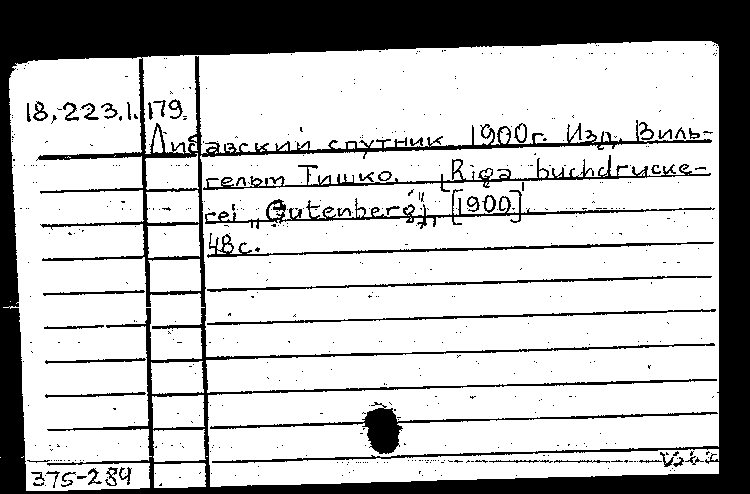 18.223.1.179.
Либавский спутник 1900г. Изд. Виль-
гельм Тишко. [Riga, buchdrucke-
rei „Gutenberg"], [1900].
48с.
375-284